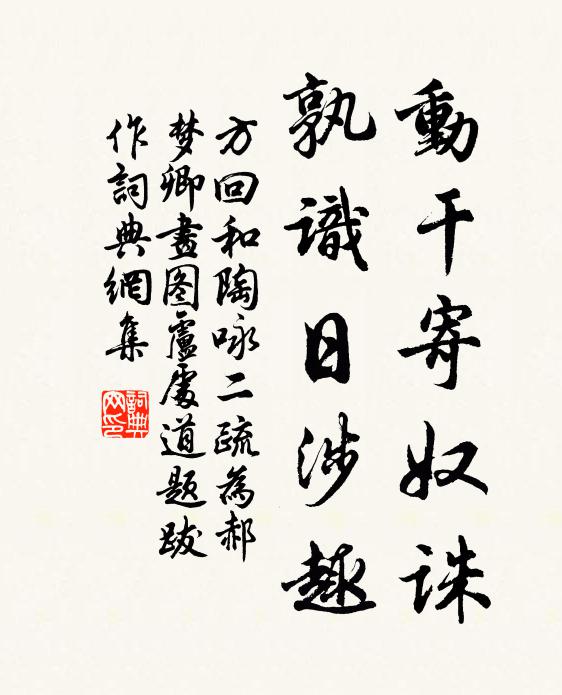 動干寄奴誅
孰識日涉趣
方回和陶咏二疏為郝
梦卿畫图盧處道题跋
作詞典網集
詞典
网印